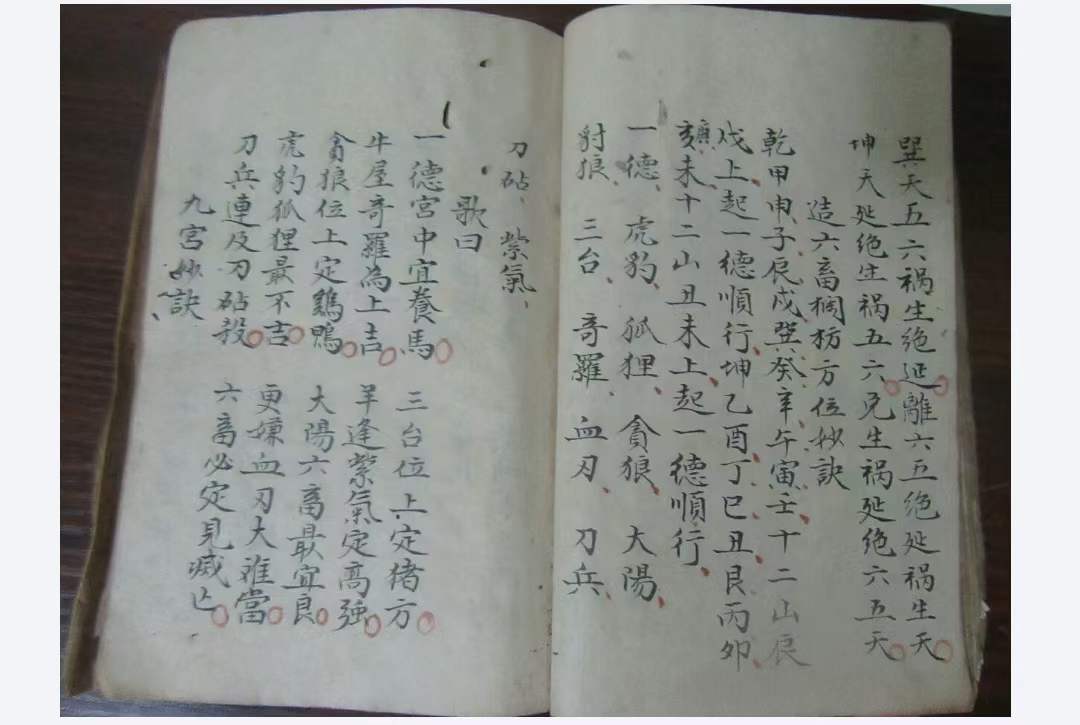 巽天五六祸生绝延離六五绝延祸生天
坤天延绝生祸五六兑生祸延绝六五天
造六畜楜枋方位妙訣
乾甲申子辰戌巽癸辛午寅壬十二山辰
戌上起一德順行坤乙酉丁巳丑艮丙卯
亥未十二山丑未上起一德順行
一德 虎豹 狐狸 貪狼 大陽
豺狼 三台 奇羅 血刃 刀兵
刀砧 紫氣
歌曰
一德宮中宜養馬 三台位上定猪方
牛屋奇羅為上吉 羊逢紫氣定高強
貪狼位上定鷄鴨 大陽六畜最宜良
虎豹狐狸最不吉 更嫌血刃大难當
刀兵連及刀砧殺 六畜必定見滅亡
九宮妙訣